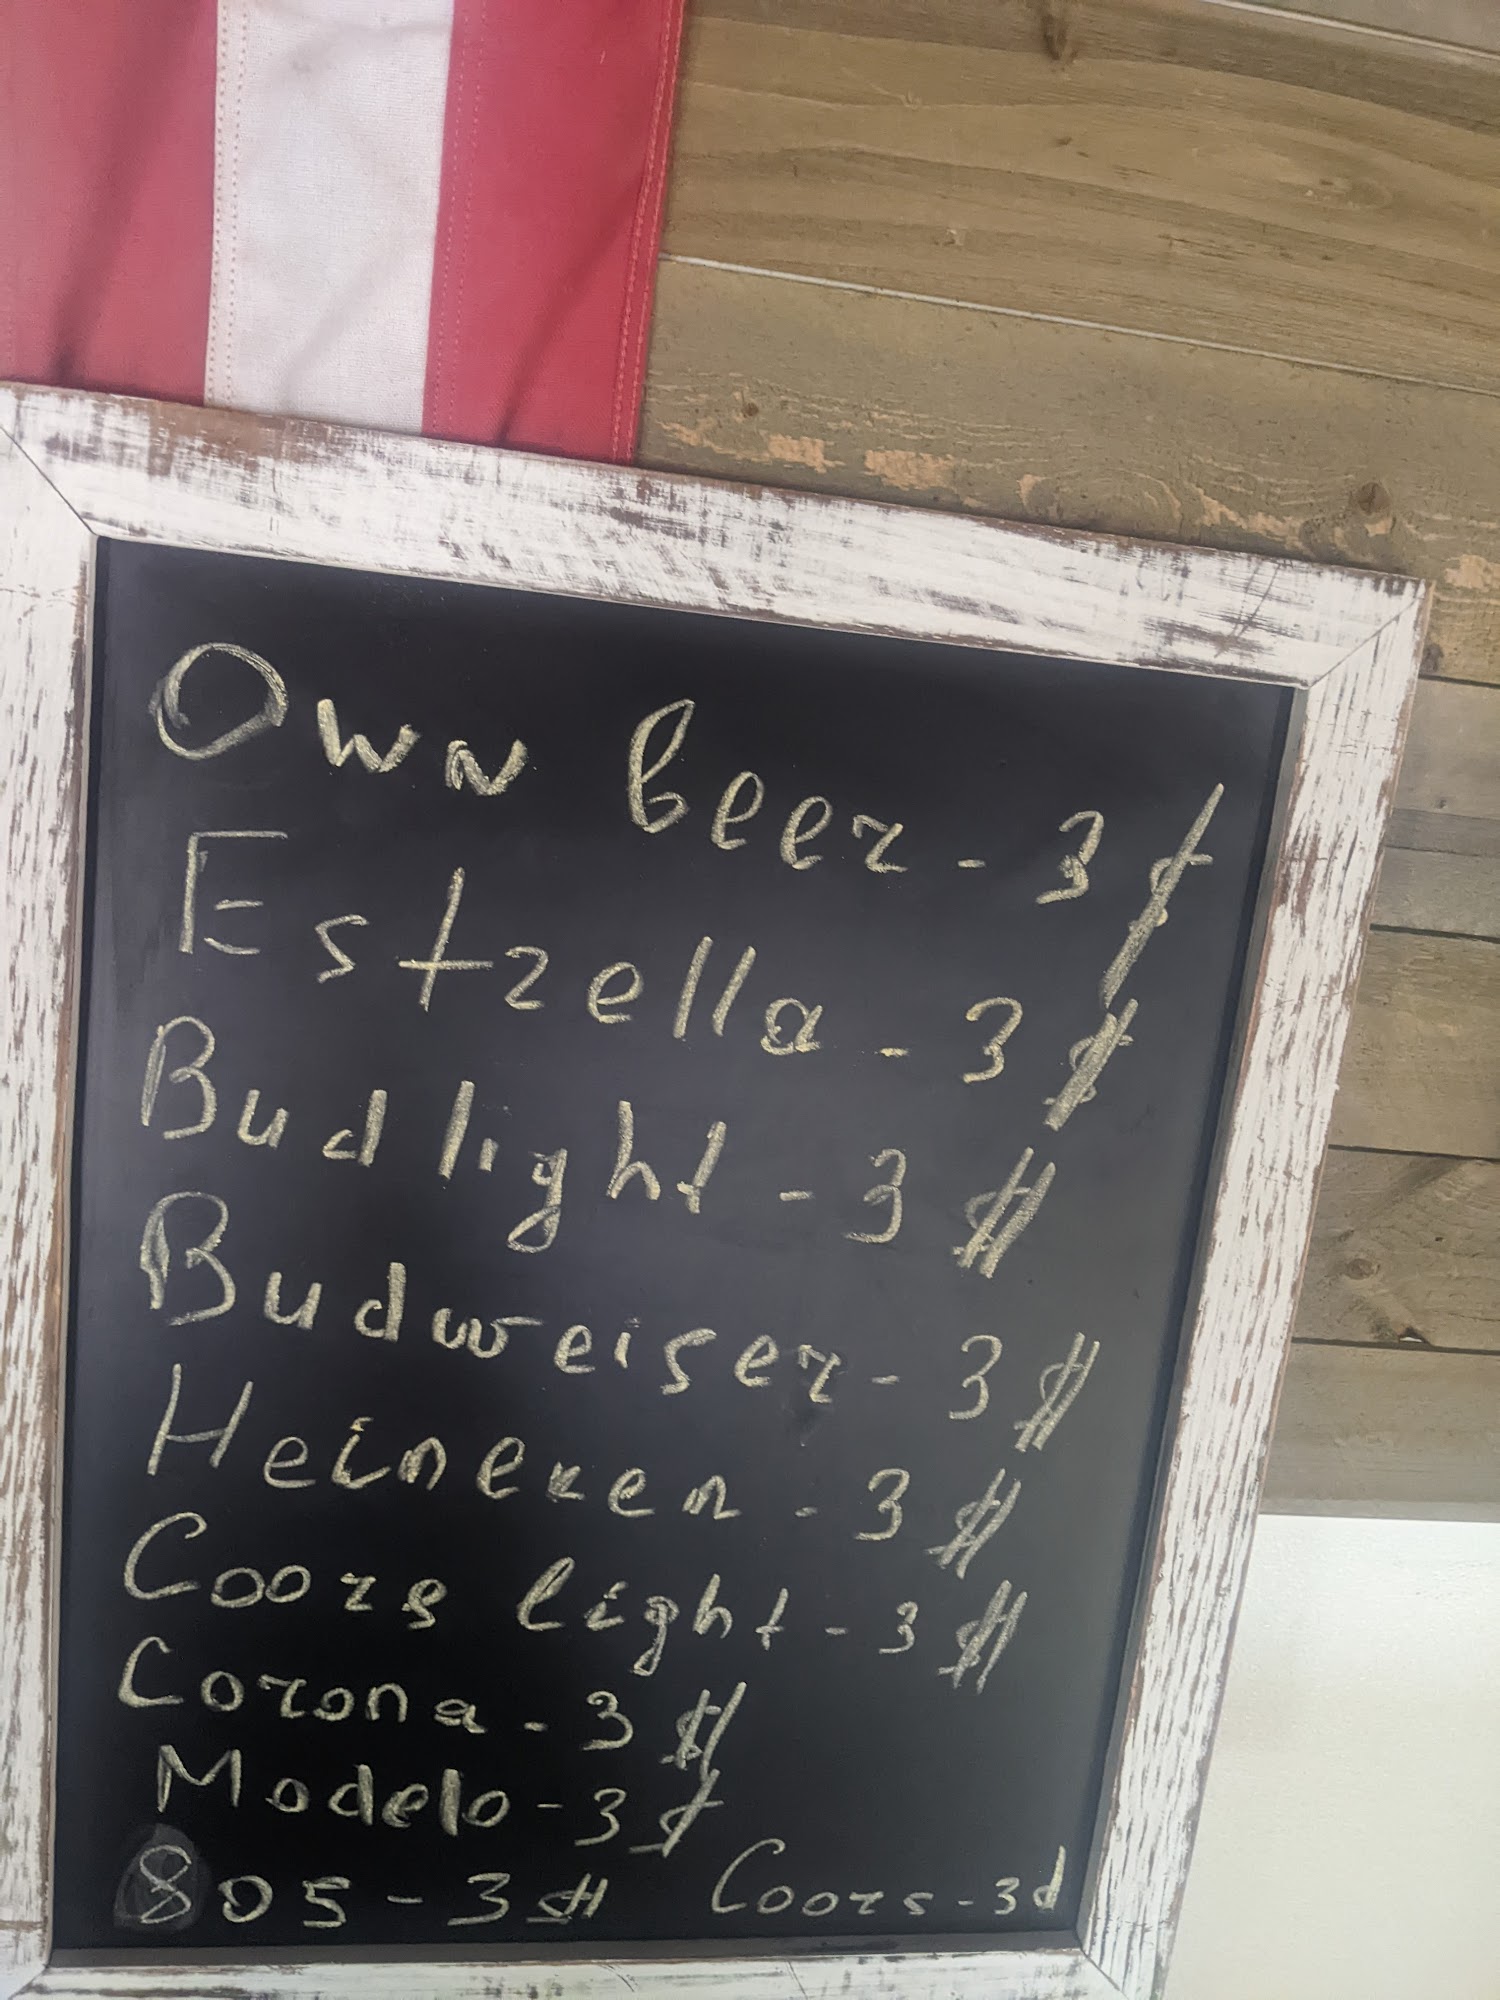 Own beer - 3 $
Estrella - 3 $
Bud light - 3 $
Budweiser - 3 $
Heineken - 3 $
Coors light - 3 $
Corona - 3 $
Modelo - 3 $
805 - 3 $ Coors - 3 d